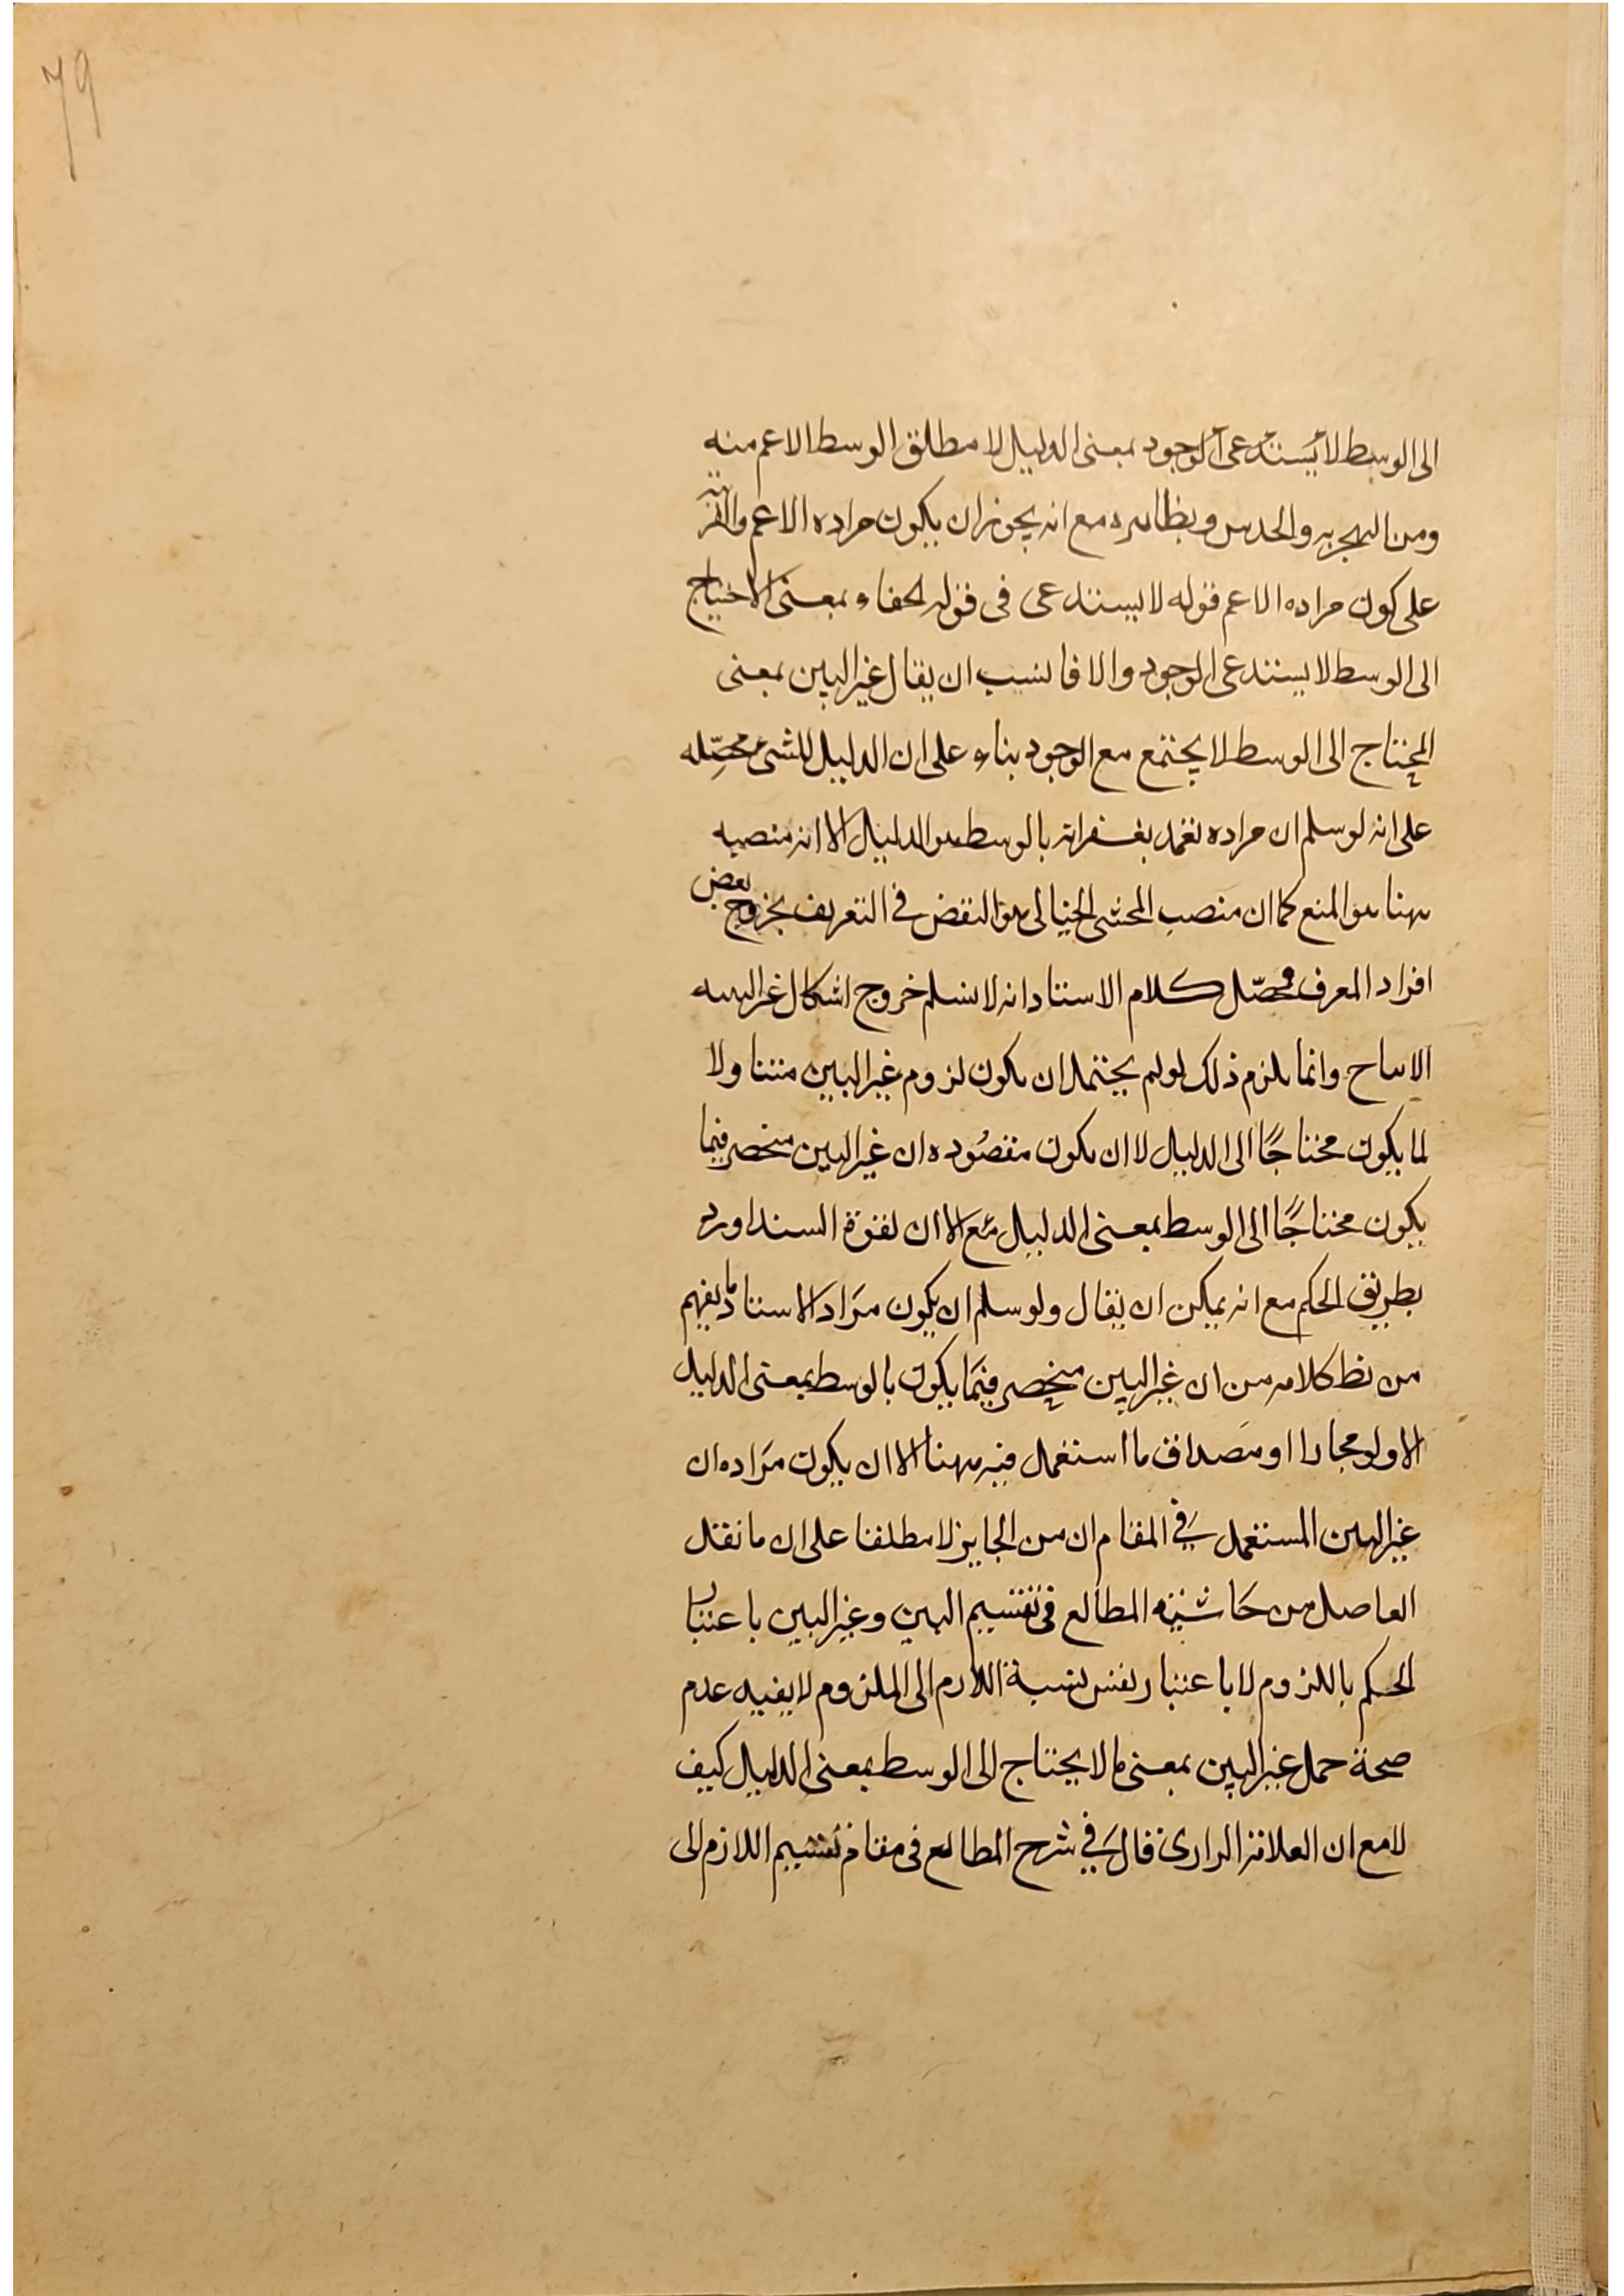 79
الى الوسط لا يستدعى الوجود بمعنى الدليل لا مطلق الوسط الاعم منه
ومن التجربه والحدس ونظائره مع انه يجوز ان يكون مراده الاعم والقرينة
على كون مراده الاعم قوله لا يستدعى فى قوله لخفاء بمعنى الاحتياج
الى الوسط لا يستدعى الوجود والا فانسب ان يقال غير البين بمعنى
المحتاج الى الوسط لا يجتمع مع الوجود بناء على ان الدليل للشئ محصّله
على انه لو سلم ان مراده تغمد بغفرانه بالوسط هو الدليل الا انه منصبه
ههنا هو المنع كما ان منصب المحشى الخيالى هو النقض فى التعريف بخروج بعض
افراد المعرف فمحصّل كلام الاستاد انه لا نسلم خروج اشكال غير البينه
الانتاج وانما يلزم ذلك لو لم يحتمل ان يكون لزوم غير البين متناولا
لما يكون محتاجًا الى الدليل لا ان يكون مقصُوده ان غير البين منحصر فيما
يكون محتاجًا الى الوسط بمعنى الدليل مع الا ان لقوة السند اورد
بطريق الحكم مع انه يمكن ان يقال ولو سلم ان يكون مرَاد الاستاد ما يفهم
من نظ كلامه من ان غير البين منحصر فيمَا يكون بالوسط بمعنى الدليل
الا ولو مجازا او مَصداق ما استعمل فيه ههنا الا ان يكون مَراده ان
غير البين المستعمل فى المقام ان من الجايز لا مطلقا على ان ما نقل
الفاصل من حَاشية المطالع فى تقسيم البين وغير البين باعتبار
الحكم باللزوم لا باعتبار نفس نسبة اللازم الى الملزوم لا يفيه عدم
صحة حمل غير البين بمعنى ما لا يحتاج الى الوسط بمعنى الدليل كيف
لا مع ان العلامة الرازى قال فى شرح المطالع فى مقام تقسيم اللازم الى